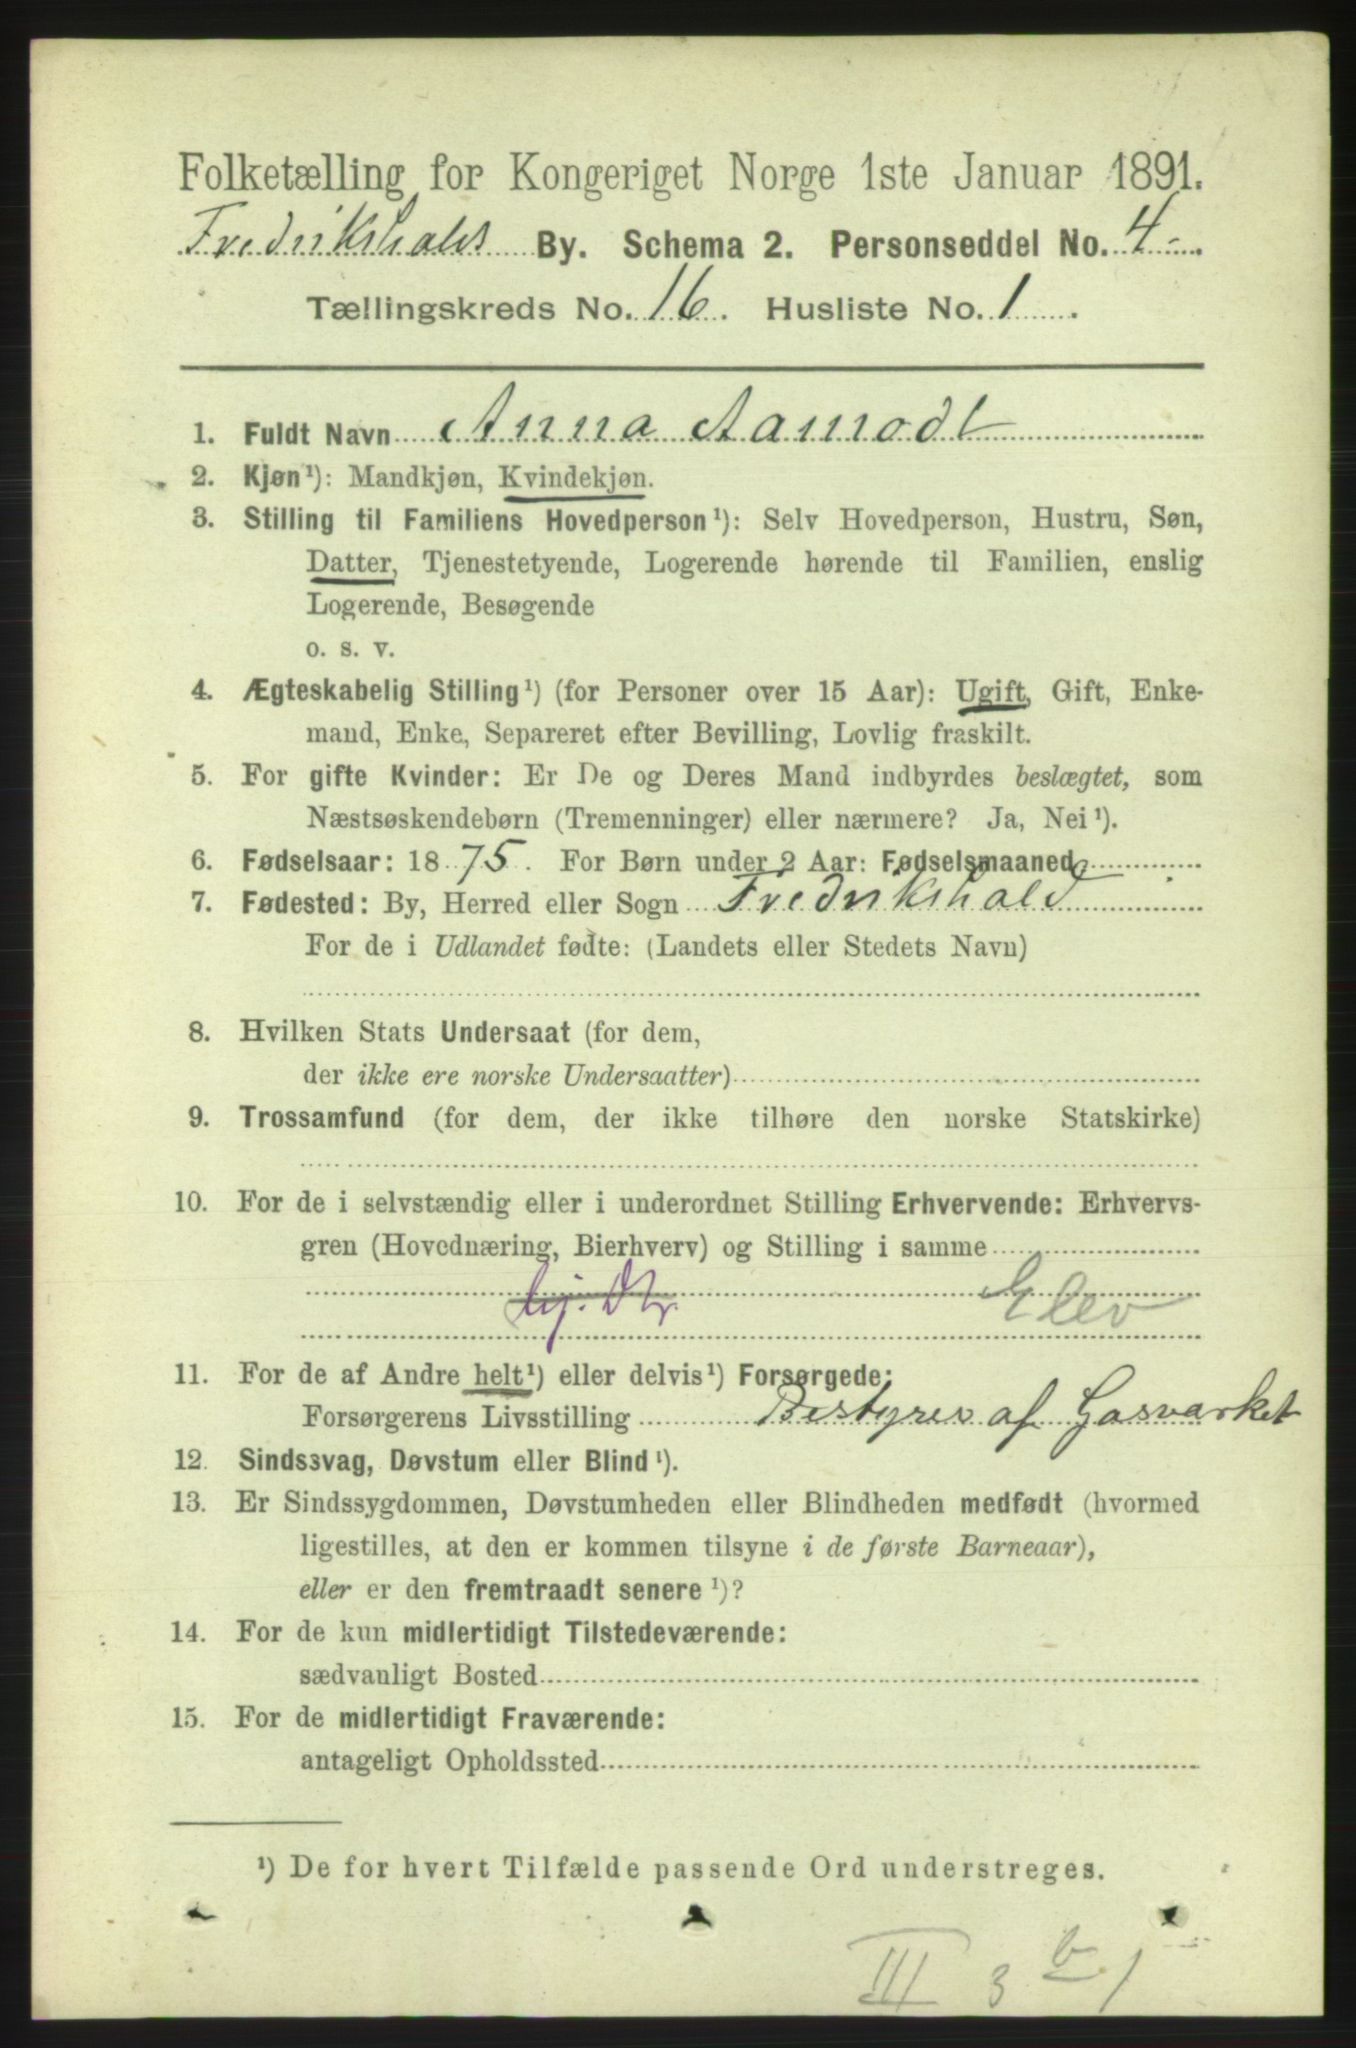 Folketælling for Kongeriget Norge 1ste Januar 1891.
Fredrikshalds By. Schema 2. Personseddel No. 4-
Tællingskreds No. 16. Husliste No. 1.
1. Fuldt Navn Anna Aamodt
2. Kjøn¹): Mandkjøn, Kvindekjøn.
3. Stilling til Familiens Hovedperson¹): Selv Hovedperson, Hustru, Søn,
Datter, Tjenestetyende, Logerende hørende til Familien, enslig
Logerende, Besøgende
o. s. v.
4. Ægteskabelig Stilling¹) (for Personer over 15 Aar): Ugift, Gift, Enke-
mand, Enke, Separeret efter Bevilling, Lovlig fraskilt.
5. For gifte Kvinder: Er De og Deres Mand indbyrdes beslægtet, som
Næstsøskendebørn (Tremenninger) eller nærmere? Ja, Nei¹).
6. Fødselsaar: 1875. For Børn under 2 Aar: Fødselsmaaned
7. Fødested: By, Herred eller Sogn Fredrikshald
For de i Udlandet fødte: (Landets eller Stedets Navn)
8. Hvilken Stats Undersaat (for dem,
der ikke ere norske Undersaatter)
9. Trossamfund (for dem, der ikke tilhøre den norske Statskirke)
10. For de i selvstændig eller i underordnet Stilling Erhvervende: Erhvervs-
gren (Hovednæring, Bierhverv) og Stilling i samme
hj. Dtr. Elev
11. For de af Andre helt¹) eller delvis¹) Forsørgede:
Forsørgerens Livsstilling Bestyrer af Gasværket
12. Sindssvag, Døvstum eller Blind¹).
13. Er Sindssygdommen, Døvstumheden eller Blindheden medfødt (hvormed
ligestilles, at den er kommen tilsyne i de første Barneaar),
eller er den fremtraadt senere¹)?
14. For de kun midlertidigt Tilstedeværende:
sædvanligt Bosted
15. For de midlertidigt Fraværende:
antageligt Opholdssted
¹) De for hvert Tilfælde passende Ord understreges.
III 3 b. 1